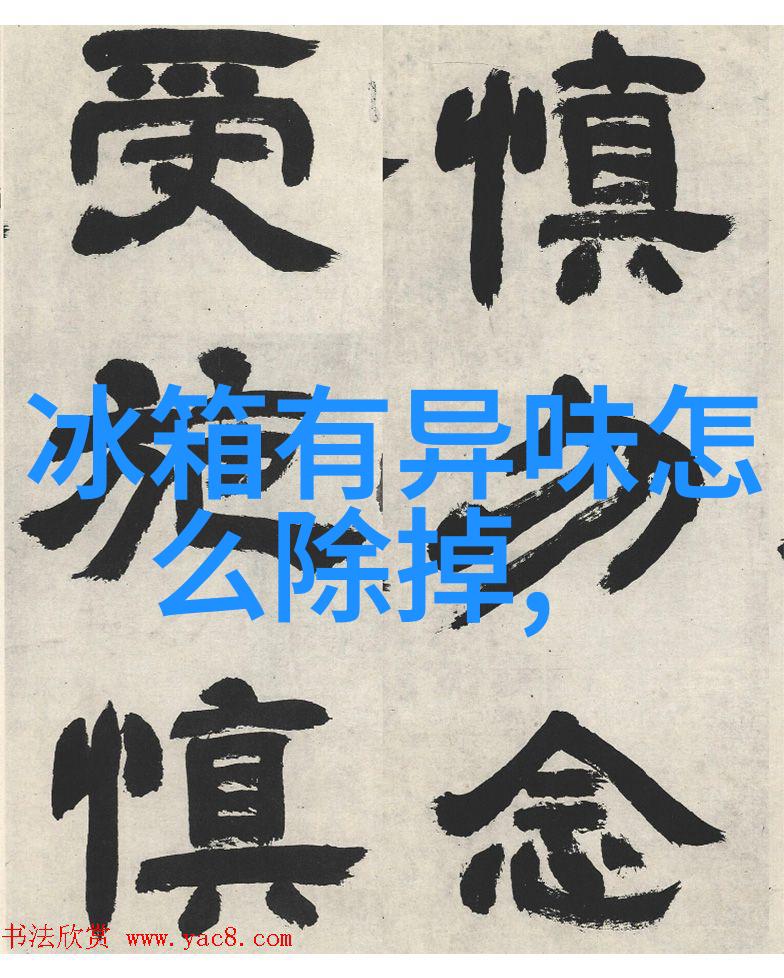 慎勿念
受施慎
冰箱有异味怎
么除掉,
书法欣赏 www.yac8.com